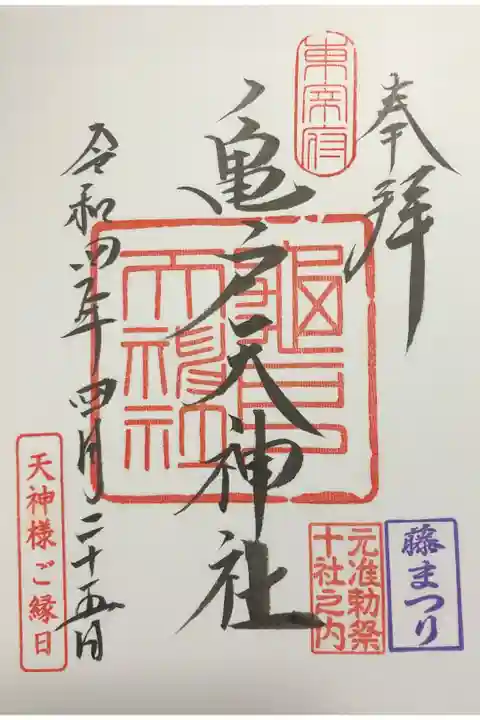 奉拝
東宰府
亀戸天神社
亀戸天神社
令和四年 四月二十五日
天神様ご縁日
元准勅祭
十社之内
藤まつり